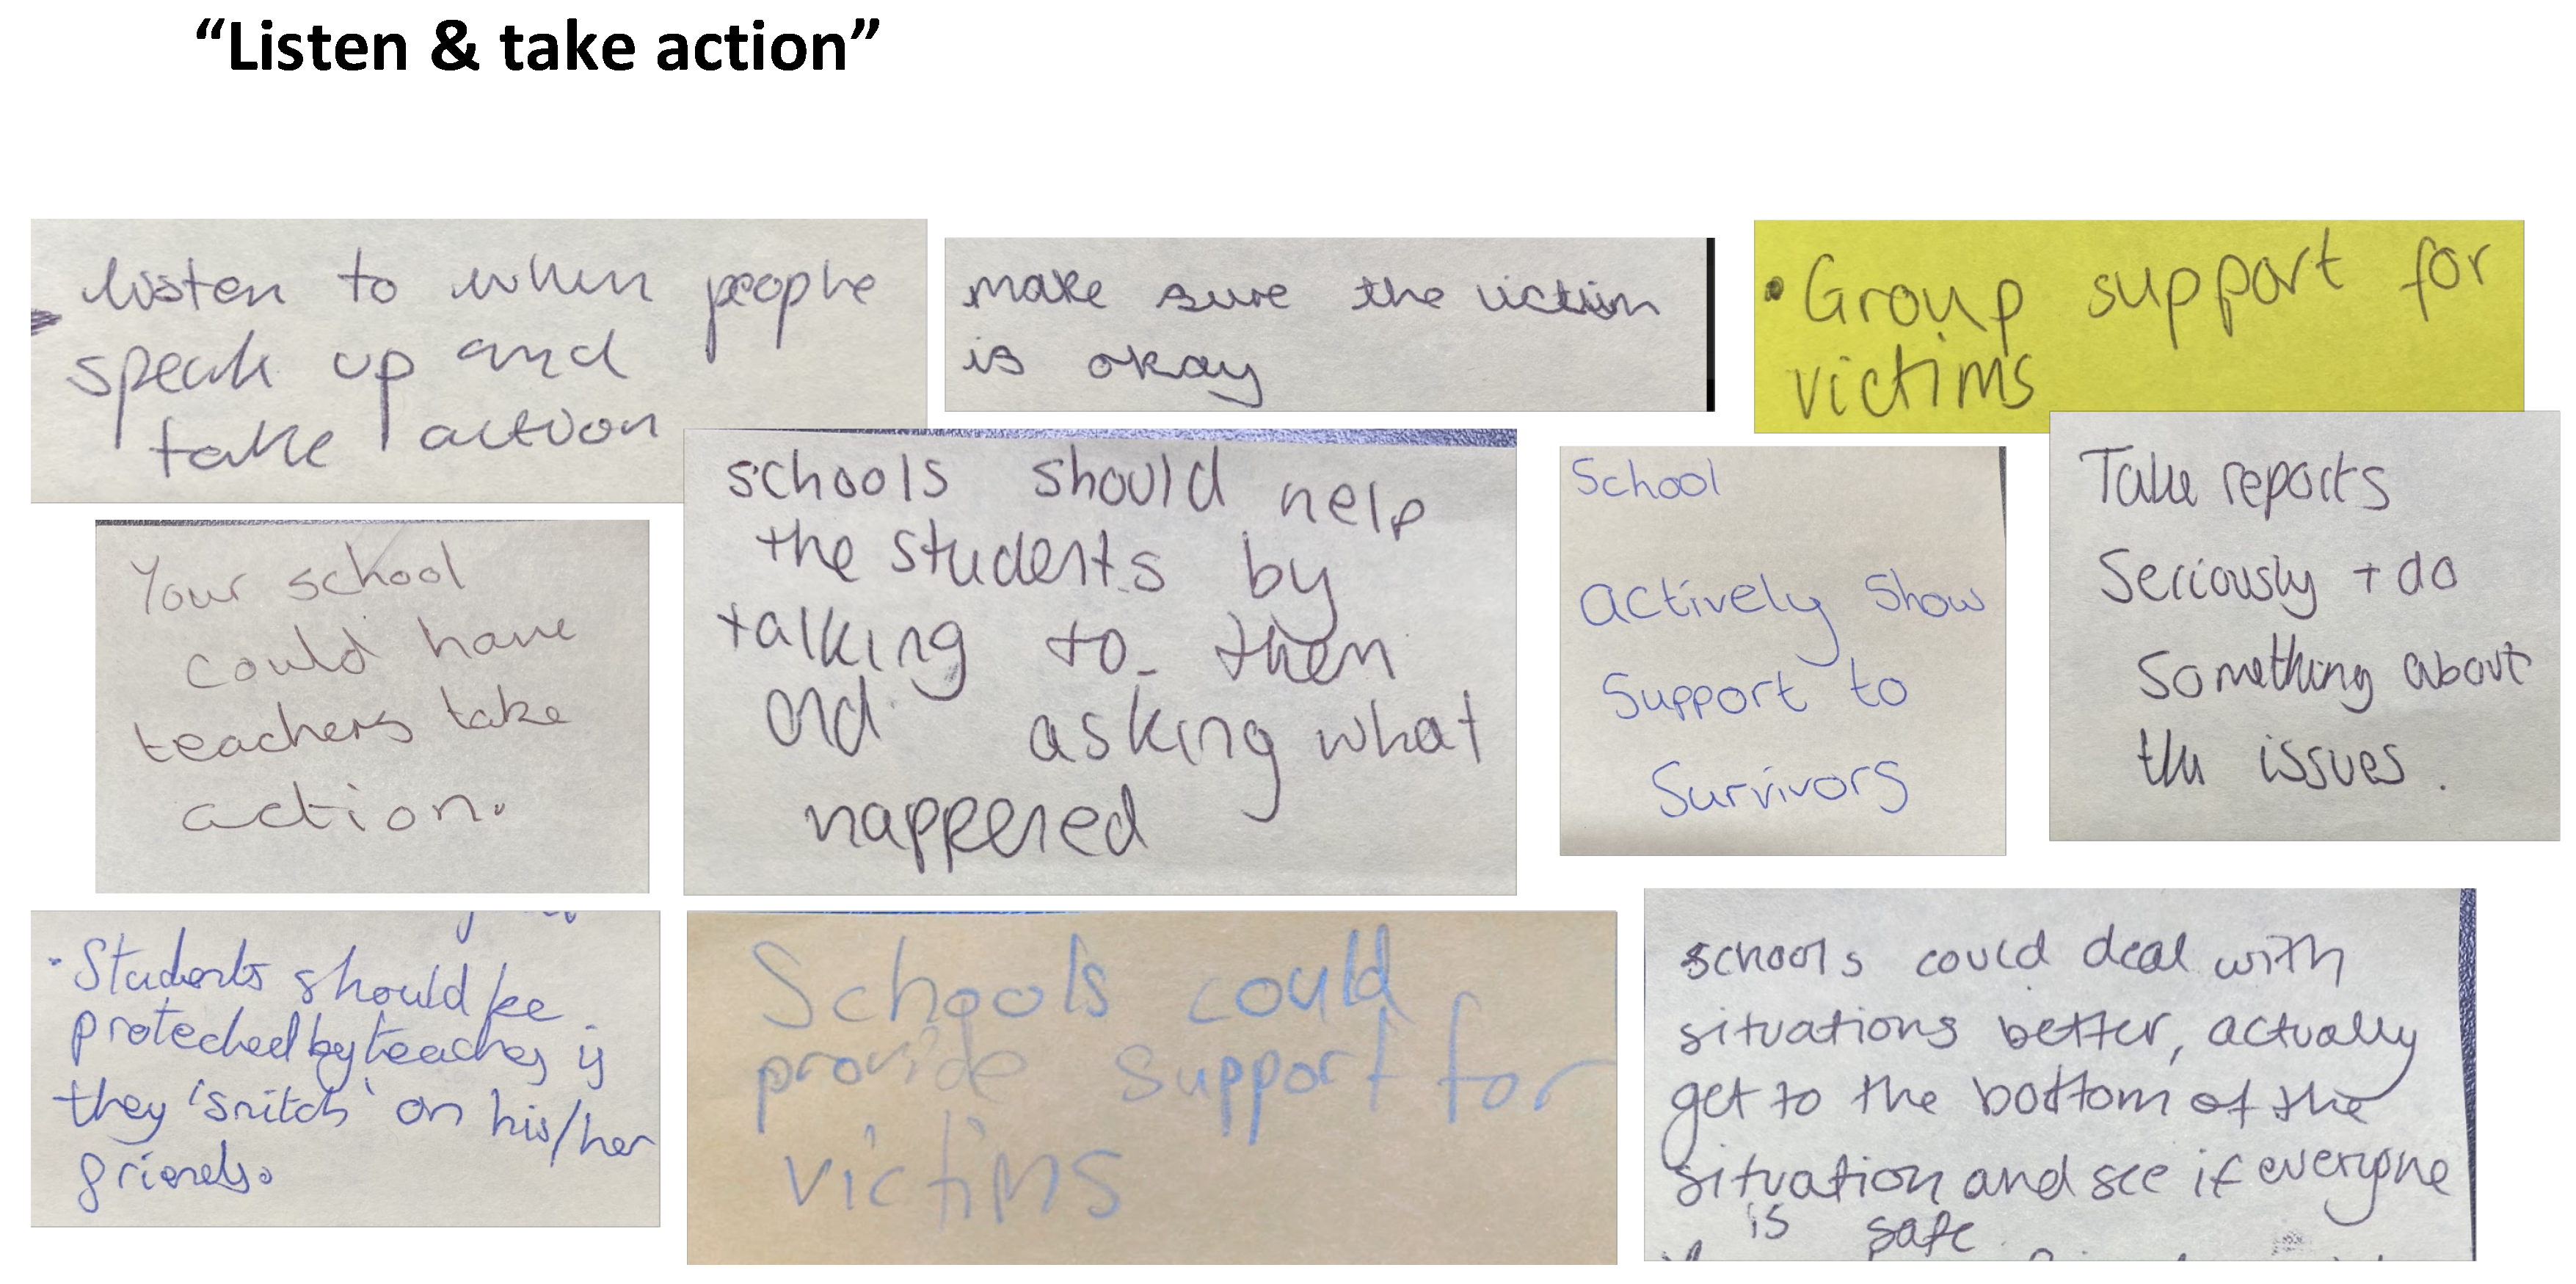 “Listen & take action”
listen to when people
speak up and
take action
make sure the victim
is okay
• Group support for
victims
schools should help
the students by
talking to them
and asking what
happened
School
actively show
support to
survivors
Take reports
seriously + do
something about
the issues.
Your school
could have
teachers take
action.
• Students should be
protected by teachers if
they 'snitch' on his/her
friends.
Schools could
provide support for
victims
schools could deal with
situations better, actually
get to the bottom of the
situation and see if everyone
is safe